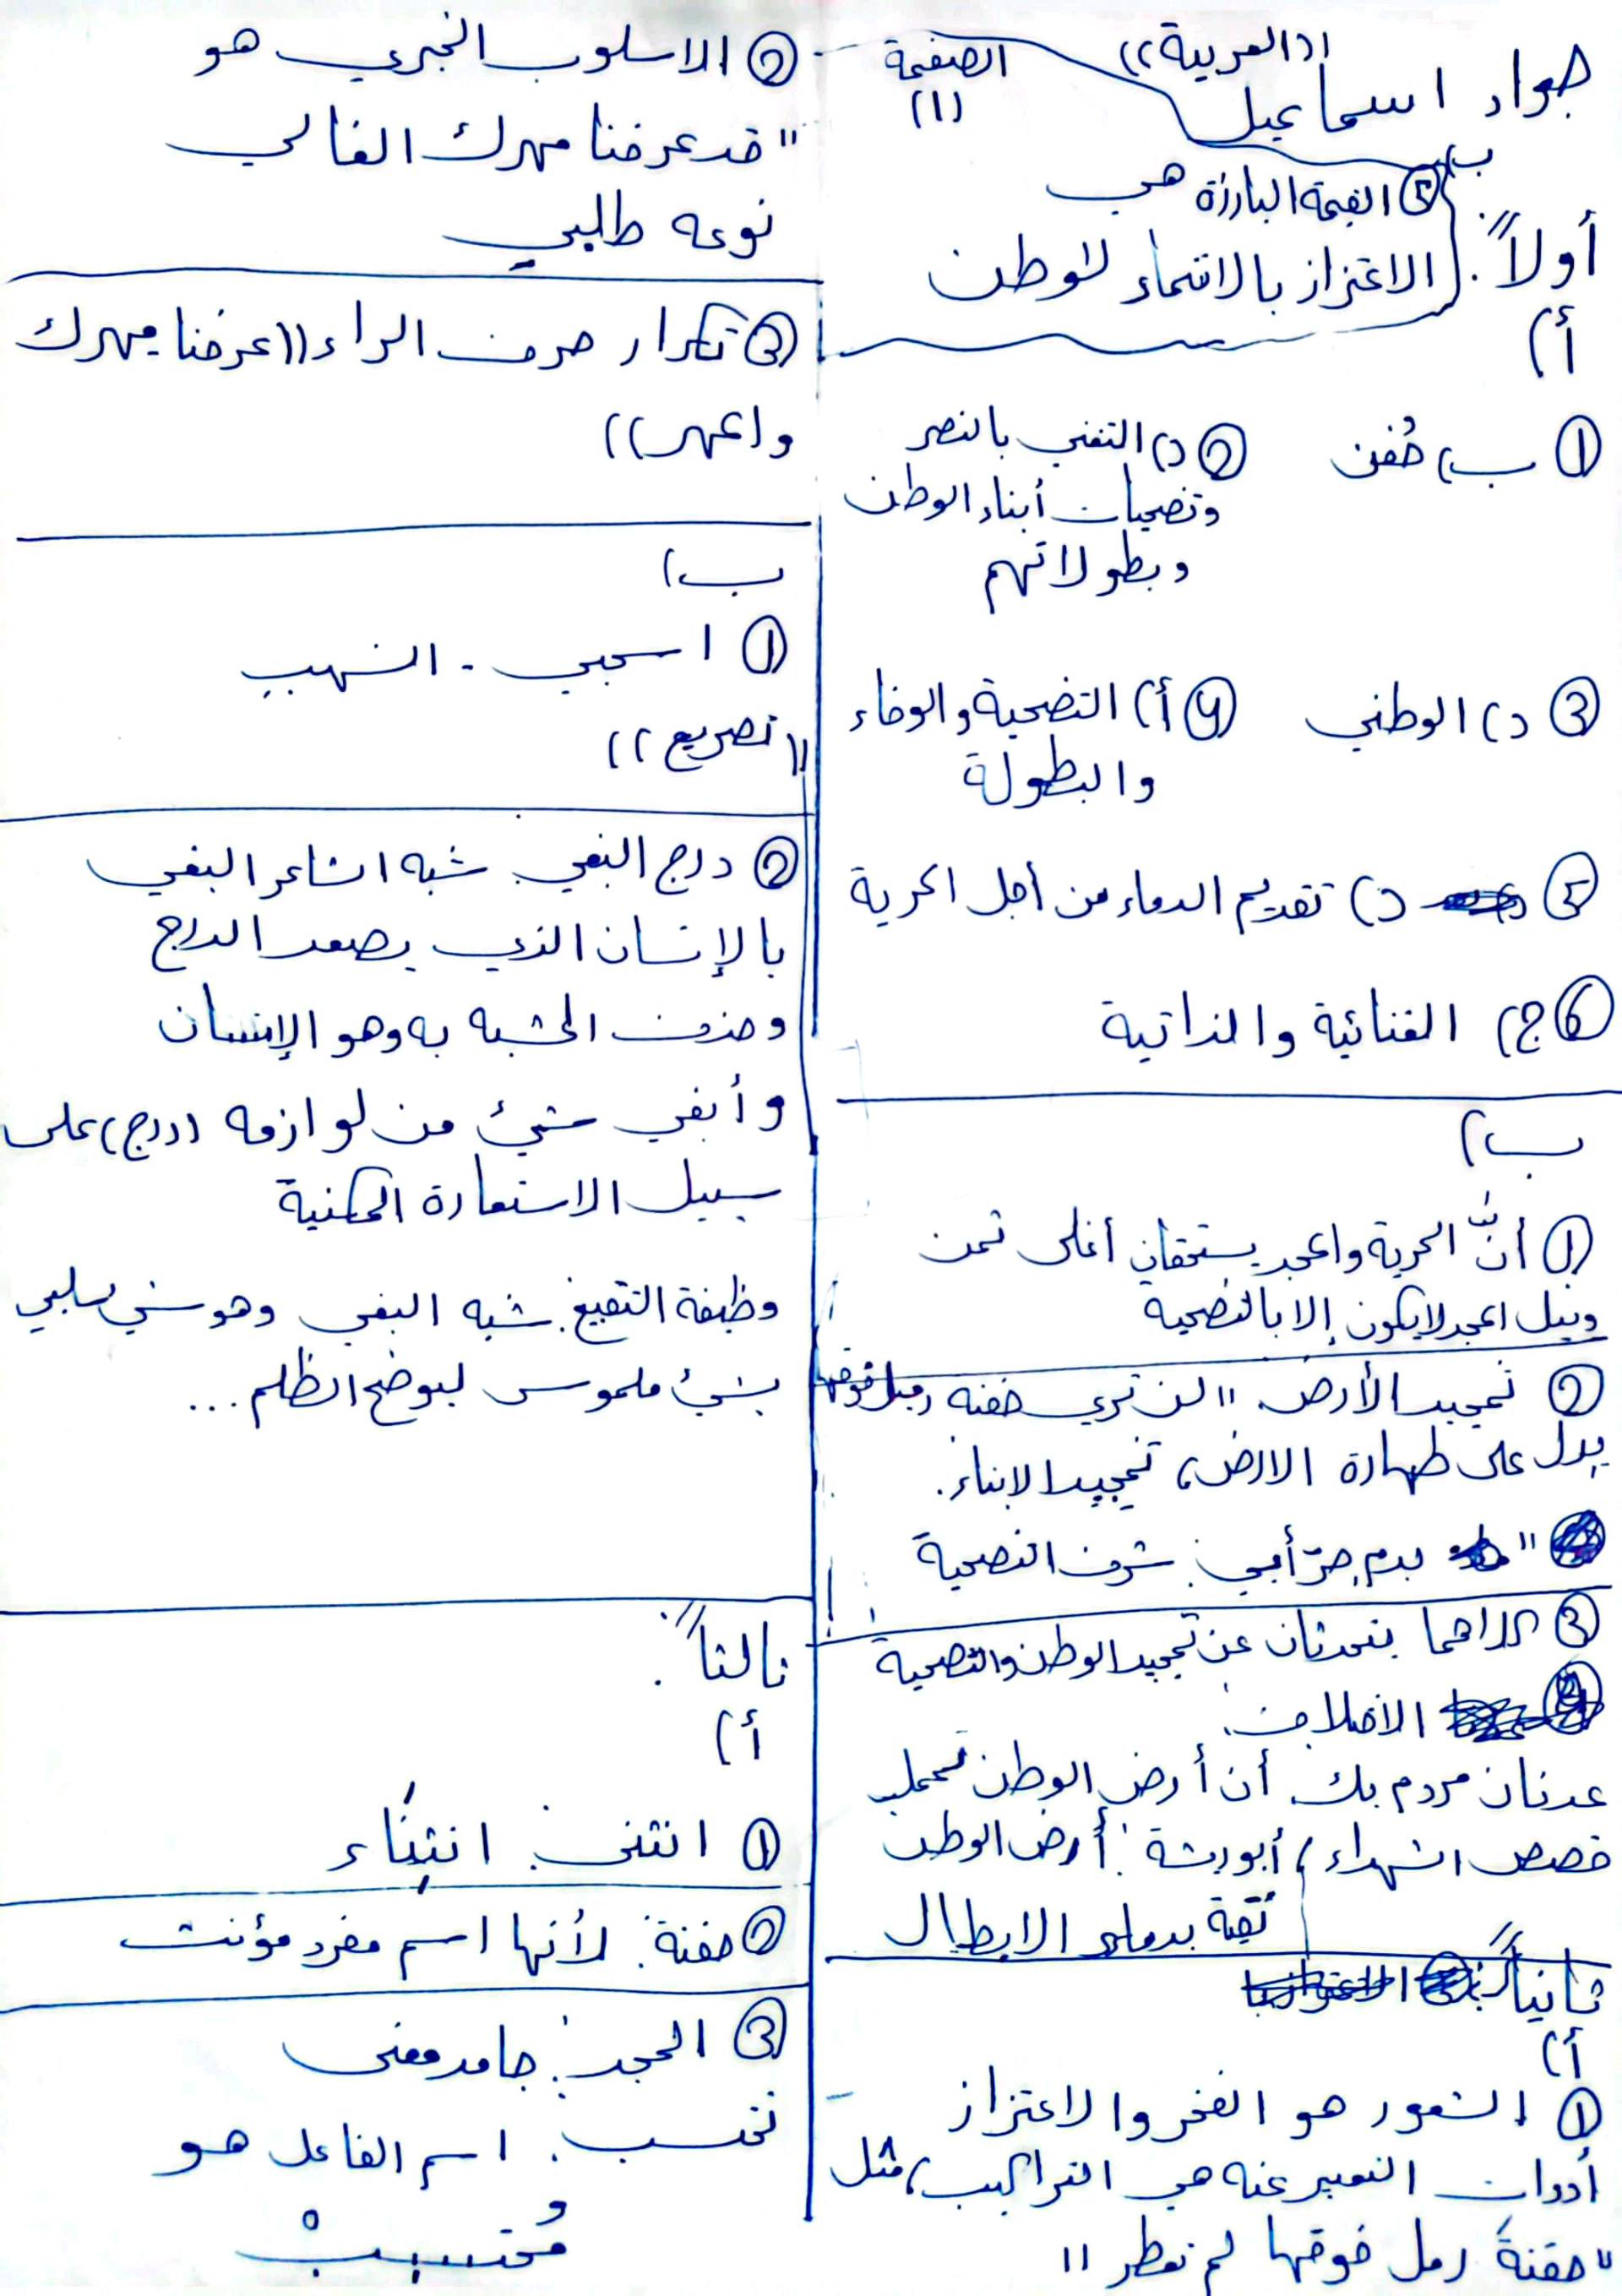 ((العربية))
الصفحة
(١)
جواد اسماعيل
ب)
⑤ القيمة البارزة هي
الاعتزاز بالانتماء للوطن
أولاً:
أ)
① ب) حُفن
② د) التغني بالنصر
وتضحيات أبناء الوطن
وبطولاتهم
③ د) الوطني
④ أ) التضحية والوفاء
والبطولة
⑤ د) تقديم الدماء من أجل الحرية
⑥ ج) الغنائية والذاتية
ب)
① أنَّ الحرية والمجد يستحقان أغلى ثمن
ونيل المجد لا يكون إلا بالتضحية
② تمجيد الأرض. "لن تري حفنه رمل فوقها
يدل على طهارة الارض، تمجيد الابناء.
" بدم حرّ أبي: شرف التضحية
③ كلاهما يتحدثان عن تمجيد الوطن والتضحية
الاختلاف:
عدنان مردم بك. أن أرض الوطن تحمل
قصص الشهداء، أبو ريشة: أرض الوطن
نقية بدماء الابطال
ثانياً:
أ)
① الشعور هو الفخر والاعتزاز
أدوات التعبير عنه هي التراكيب، مثل
"حفنةَ رمل فوقها لم تعطر"
② الاسلوب الخبري هو
"قد عرفنا مهرك الغالي
نوعه طلبي
③ تكرار حرف الراء ((عرفنا مهرك
والمهر))
ب)
① اسحبي - الشهب
((تصريع))
② درج البغي: شبه الشاعر البغي
بالإنسان الذي يصعد الدرج
وحذف المشبه به وهو الإنسان
وأبقى شيئ من لوازمه (درج) على
سبيل الاستعارة المكنية
وظيفة التقبيح: شبه البغي وهو شي سلبي
بشيئ ملموس ليوضح الظلم...
ثالثاً:
أ)
① انتنى: انتِنَاء
② حفنة: لأنها اسم مفرد مؤنث
③ المجد: جامد معنى
تحتسب: اسم الفاعل هو
مُحْتسِب